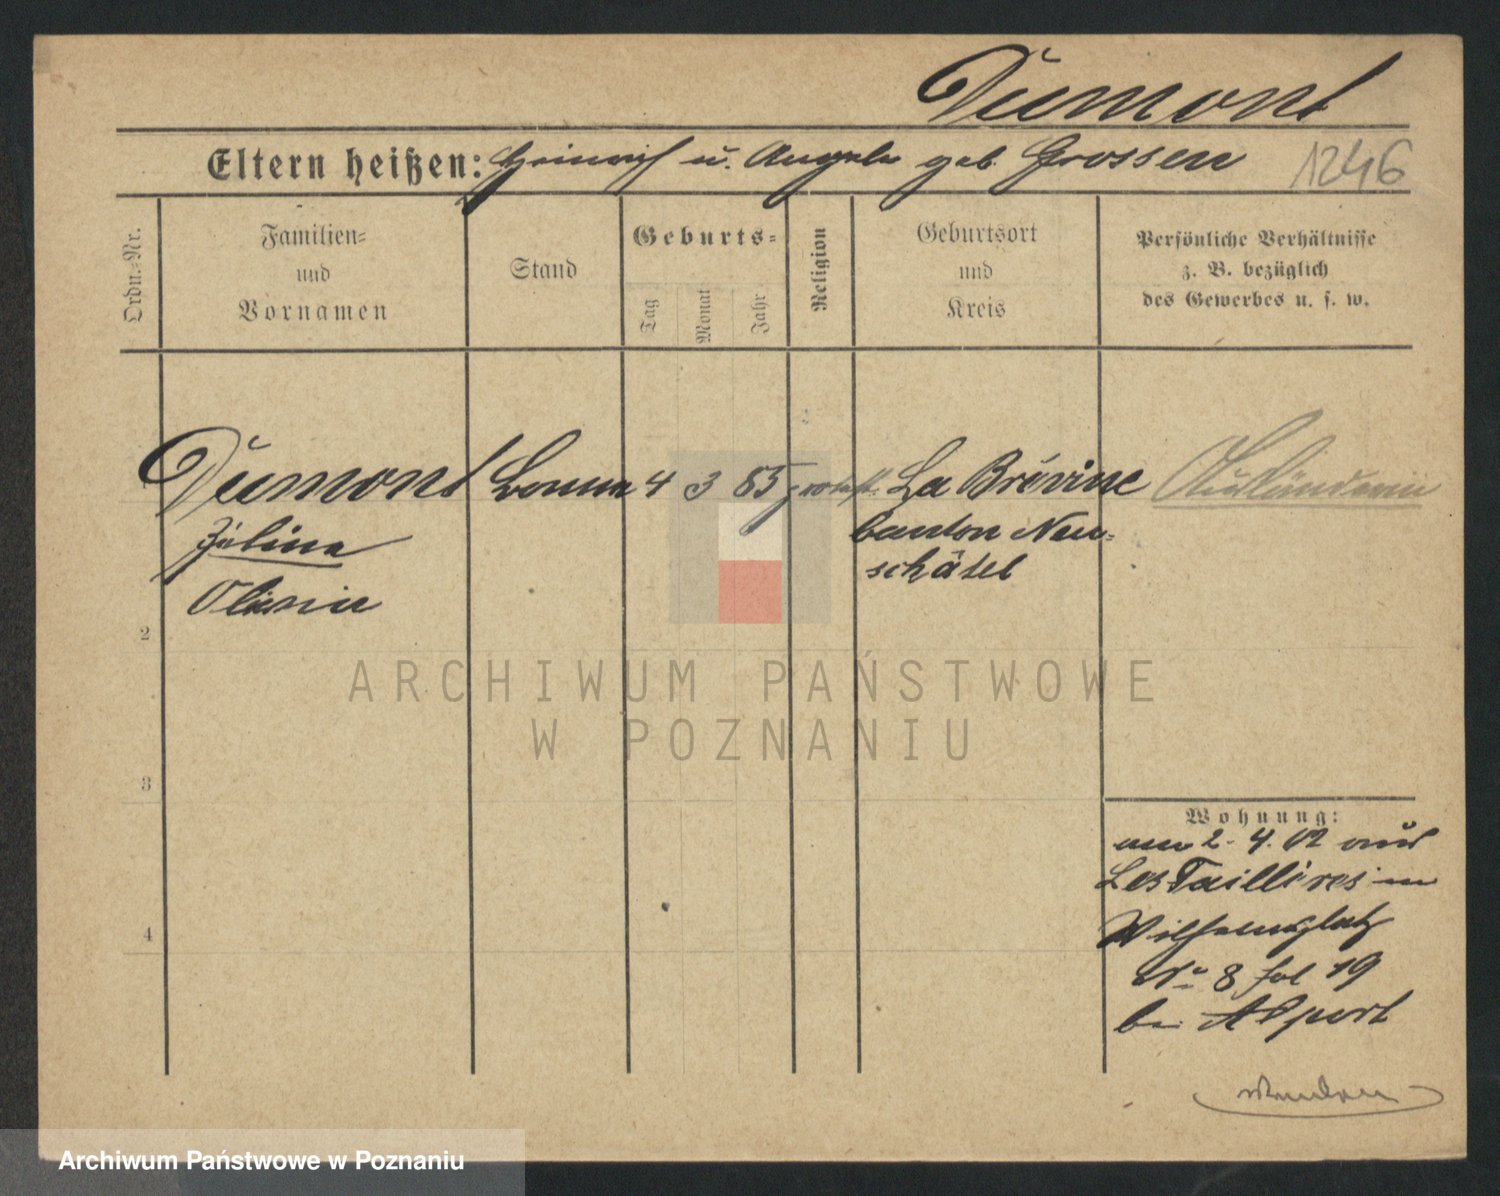 Dumont
Eltern heißen: Heinrich u. Angela geb. Grossen 1246
Ordn.-Nr.
Familien-
und
Vornamen
Stand
Geburts-
Tag
Monat
Jahr
Religion
Geburtsort
und
Kreis
Persönliche Verhältnisse
z. B. bezüglich
des Gewerbes u. s. w.
Dumont Bonne 4 3 85 protest. La Brévine Ausländerin
Zélina canton Neu-
schâtel
2
3
4
Wohnung:
2. 4. 02 aus
Les Taillères in
Wilhelmsplatz
No 8 fol 19
bei Alport
ARCHIWUM PAŃSTWOWE
W POZNANIU
Archiwum Państwowe w Poznaniu